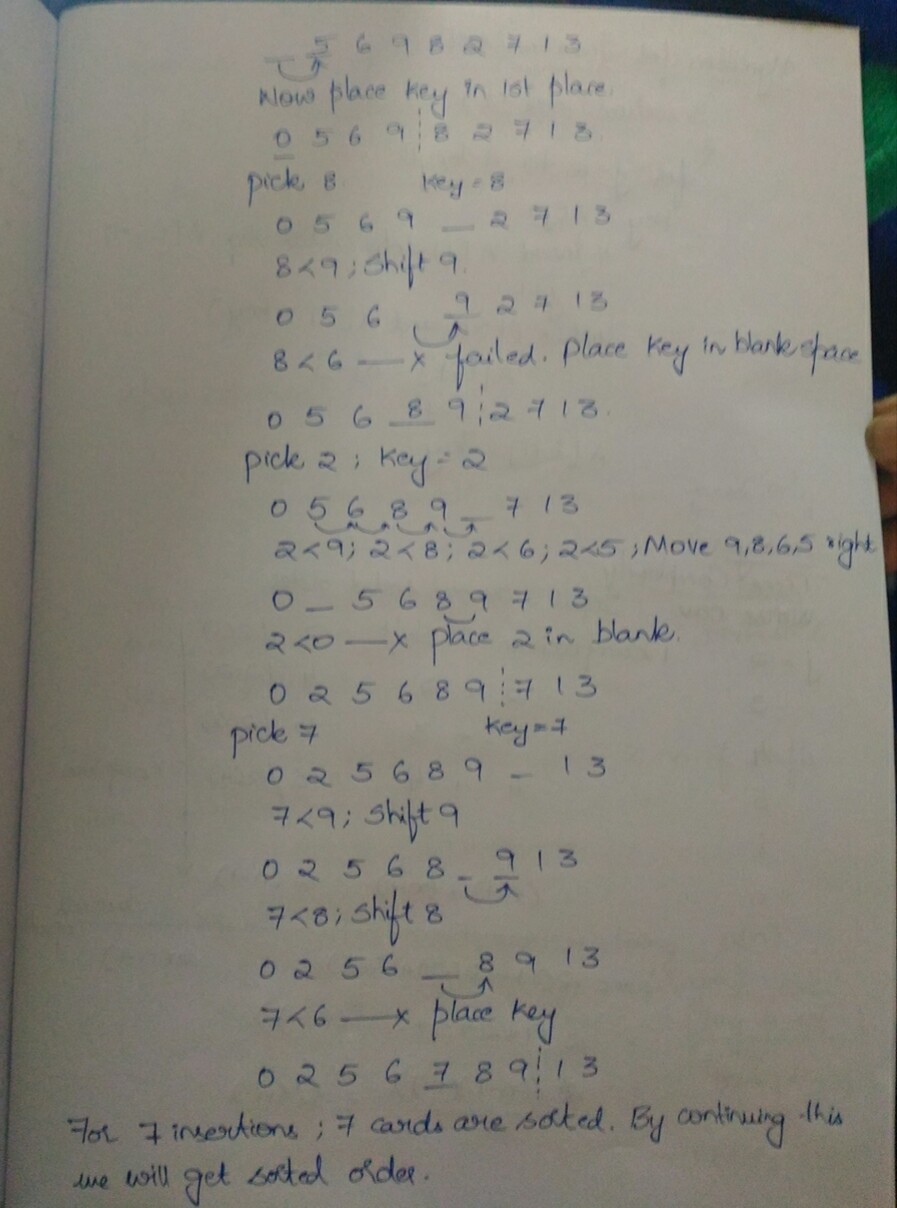 _ 5 6 9 8 2 7 1 3
Now place key in 1st place.
0 5 6 9 8 2 7 1 3.
pick 8 key = 8
0 5 6 9 _ 2 7 1 3
8<9; Shift 9.
0 5 6 _ 9 2 7 1 3
8<6 — x failed. Place key in blank space
0 5 6 8 9 2 7 1 3.
pick 2; key = 2
0 5 6 8 9 _ 7 1 3
2<9; 2<8; 2<6; 2<5; Move 9,8,6,5 right
0 _ 5 6 8 9 7 1 3
2<0 — x place 2 in blank.
0 2 5 6 8 9 7 1 3
pick 7 key=7
0 2 5 6 8 9 _ 1 3
7<9; Shift 9
0 2 5 6 8 _ 9 1 3
7<8; Shift 8
0 2 5 6 _ 8 9 1 3
7<6 — x place key
0 2 5 6 7 8 9 1 3
For 7 insertions; 7 cards are sorted. By continuing this
we will get sorted order.